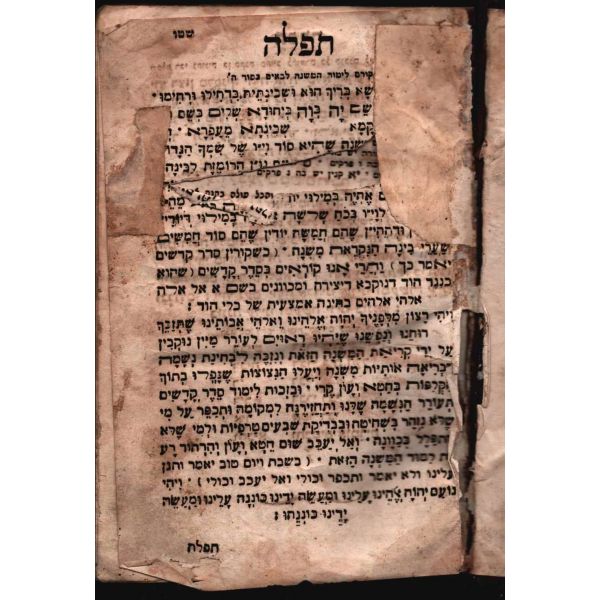 שטו
תפלה
קודם לימוד המשנה לבאים בסוד ה'
שא בריך הוא ושכינתיה בדחילו ורחימו
שם יה בוה ביחודא שלים בשם
שכינתא מעפרא
משנה שהיא סוד ויו של שמך הגדול
אהיה במילוי
לויו בכח שלשה במילוי דיודי
ודתהיין שהם חמשת יודין שהם סוד חמשים
שערי בינה הנקראה משנה ׃ (כשקורין סדר קדשים
יאמר כך) והרי אנו קוראים בסדר קדשים (שהוא
כנגד הוד דנוקבא דיצירה ומכוונים בשם א אל אלה
אלהי אלהים בחינה אמצעית של כלי הוד ׃
ויהי רצון מלפניך יהוה אלהינו ואלהי אבותינו שתזכך
רוחנו ונפשנו שיהיו ראויים לעורר מיין נוקבין
על ידי קריאת המשנה הזאת ונזכה לבחינת נשמה
דבריאה אותיות משנה ויעלו הנצוצות שנפלו בתוך
הקלפות בחטא ועון קרי ׳ ובזכות לימוד סדר קדשים
תעורר הנשמה שלנו ותחזירנה למקומה ותכפר על מי
שלא נזהר בשחיטה ובבדיקת שבעים טרפיות ולמי שלא
התפלל בכוונה ׳ ואל יעכב שום חטא ועון והרהור רע
את למוד המשנה הזאת ׃ (בשבת ויום טוב יאמר ותגן
עלינו ולא יאמר ותכפר וכולי ואל יעכב וכולי) ׃ ויהי
נועם יהוה אלהינו עלינו ומעשה ידינו כוננה עלינו ומעשה
ידינו כוננהו ׃
תפלת